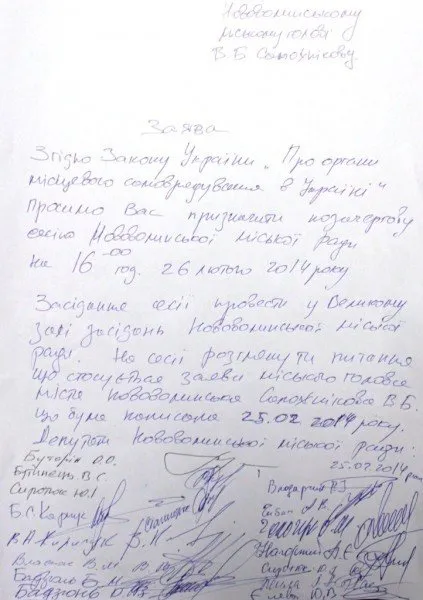 Нововолинському
міському голові
В.Б Сапожнікову
Заява
Згідно Закону України „Про органи
місцевого самоврядування в Україні"
просимо Вас призначити позачергову
сесію Нововолинської міської ради
на 16-00 год. 26 лютого 2014 року
Засідання сесії провести у Великому
залі засідань Нововолинської міської
ради. На сесії розглянути питання
що стосується заяви міського голови
міста Нововолинська Сапожнікова В.Б.
що була написана 25.02 2014 року.
Депутати Нововолинської міської ради.
25.02.2014 року
Бучарін О.О.
В.С.
Сиротюк Ю.І
Б.С
В.А.
В.М
Бадзюнь
Бадзюнь